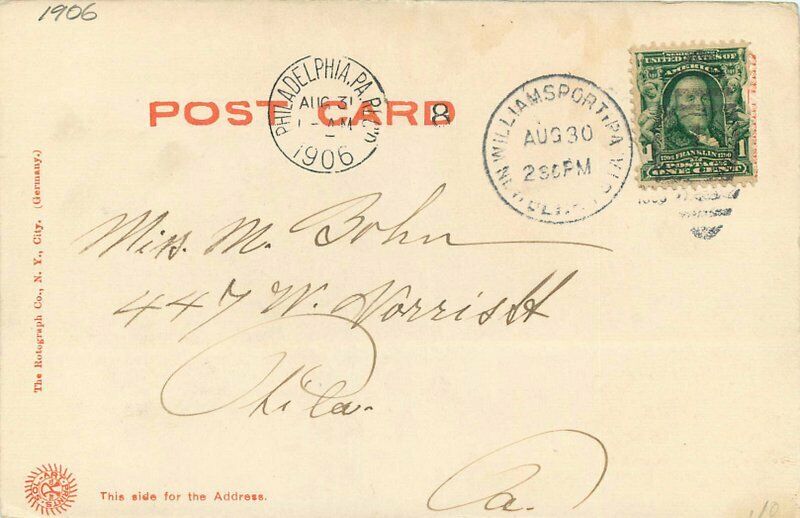 1906
SERIES 1902
UNITED STATES OF
AMERICA
1706 FRANKLIN 1790
POSTAGE
1 ONE CENT 1
POST CARD
PHILADELPHIA, PA.
AUG 31
AM
1906
8
WILLIAMSPORT, PA.
AUG 30
230 PM
Miss. M. Bohn
447 W. Norris St
Phila.
Pa.
The Rotograph Co., N. Y., City. (Germany.)
This side for the Address.